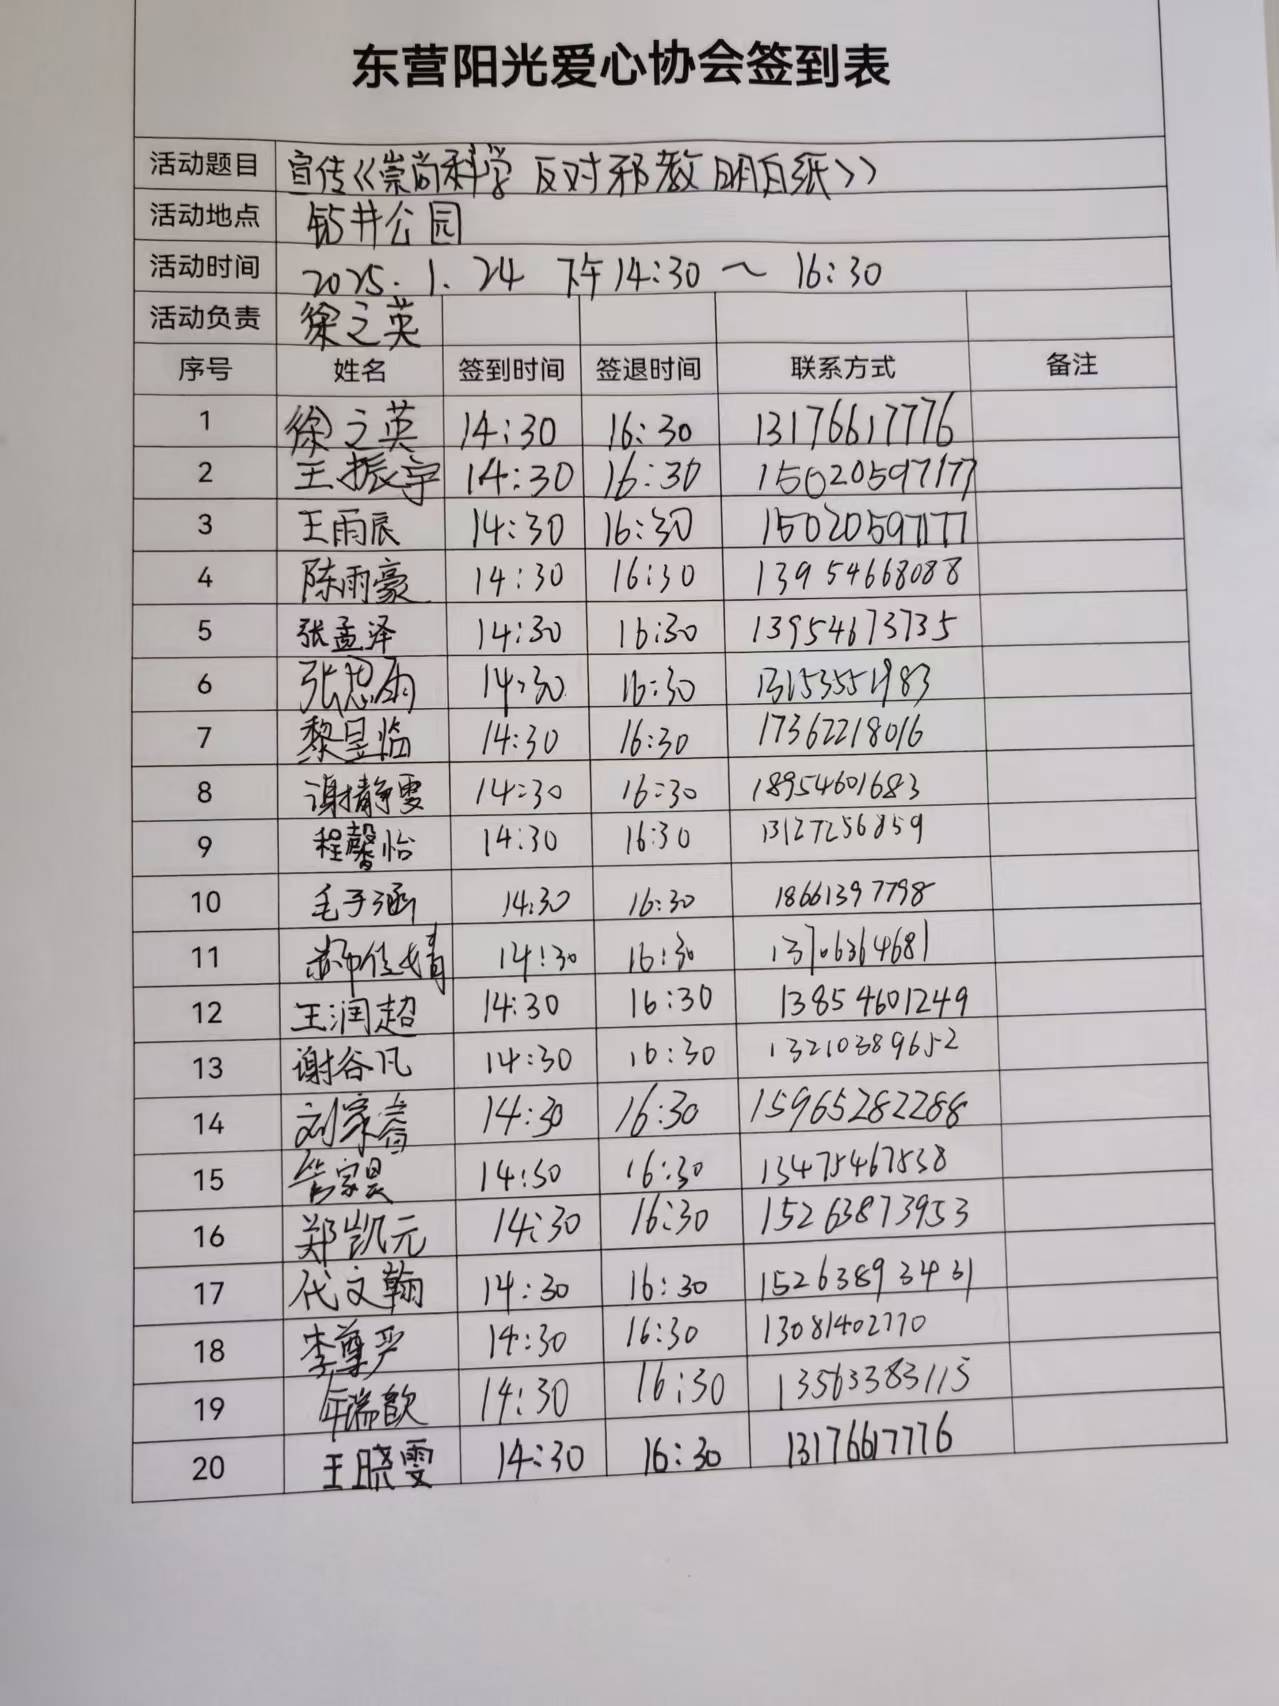 东营阳光爱心协会签到表
活动题目 宣传《崇尚科学 反对邪教明白纸》
活动地点 钻井公园
活动时间 2025.1.24 下午14:30～16:30
活动负责 徐之英
序号 姓名 签到时间 签退时间 联系方式 备注
1 徐之英 14:30 16:30 13176617776
2 王振宇 14:30 16:30 15020597177
3 王雨辰 14:30 16:30 15020597177
4 陈雨豪 14:30 16:30 13954668088
5 张孟泽 14:30 16:30 13954673735
6 张思雨 14:30 16:30 13153551983
7 黎昱临 14:30 16:30 17362218016
8 谢静雯 14:30 16:30 18954601683
9 程馨怡 14:30 16:30 13127256859
10 毛子涵 14:30 16:30 18661397798
11 14:30 16:30 13706364681
12 王润超 14:30 16:30 13854601249
13 谢谷凡 14:30 16:30 13210389652
14 刘家睿 14:30 16:30 15965282288
15 管家昊 14:30 16:30 13475467538
16 郑凯元 14:30 16:30 15263873953
17 代文翰 14:30 16:30 15263893431
18 李尊严 14:30 16:30 13081402770
19 瑞歆 14:30 16:30 13563383115
20 王晓雯 14:30 16:30 13176617776